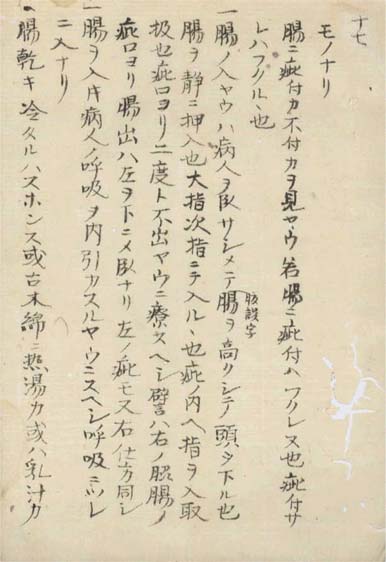 十七
モノナリ
腸ニ疵付カ不付カヲ見ヤウ若腸ニ疵付ハフクレヌ也疵付サ
レハフクルヽ也
誤字
一腸ノ入ヤウハ病人ヲ臥サシメテ腸ヲ高クシテ頭ヲ下ル也
腸ヲ静ニ押入也大指次指ニテ入ルヽ也疵ノ内ヘ指ヲ入取
扱也疵口ヨリ二度ト不出ヤウニ療スヘシ譬ハ右ノ腸ノ
疵口ヨリ腸出ハ左ヲ下ニメ臥ナリ左ノ疵モ又右仕方同シ
一腸ヲ入キ病人ノ呼吸ヲ内引カスルヤウニスヘシ呼吸ニツレ
ニ入ナリ
一腸乾キ冷タルハスホンス或古木綿ニ熱湯カ或ハ乳汁カ